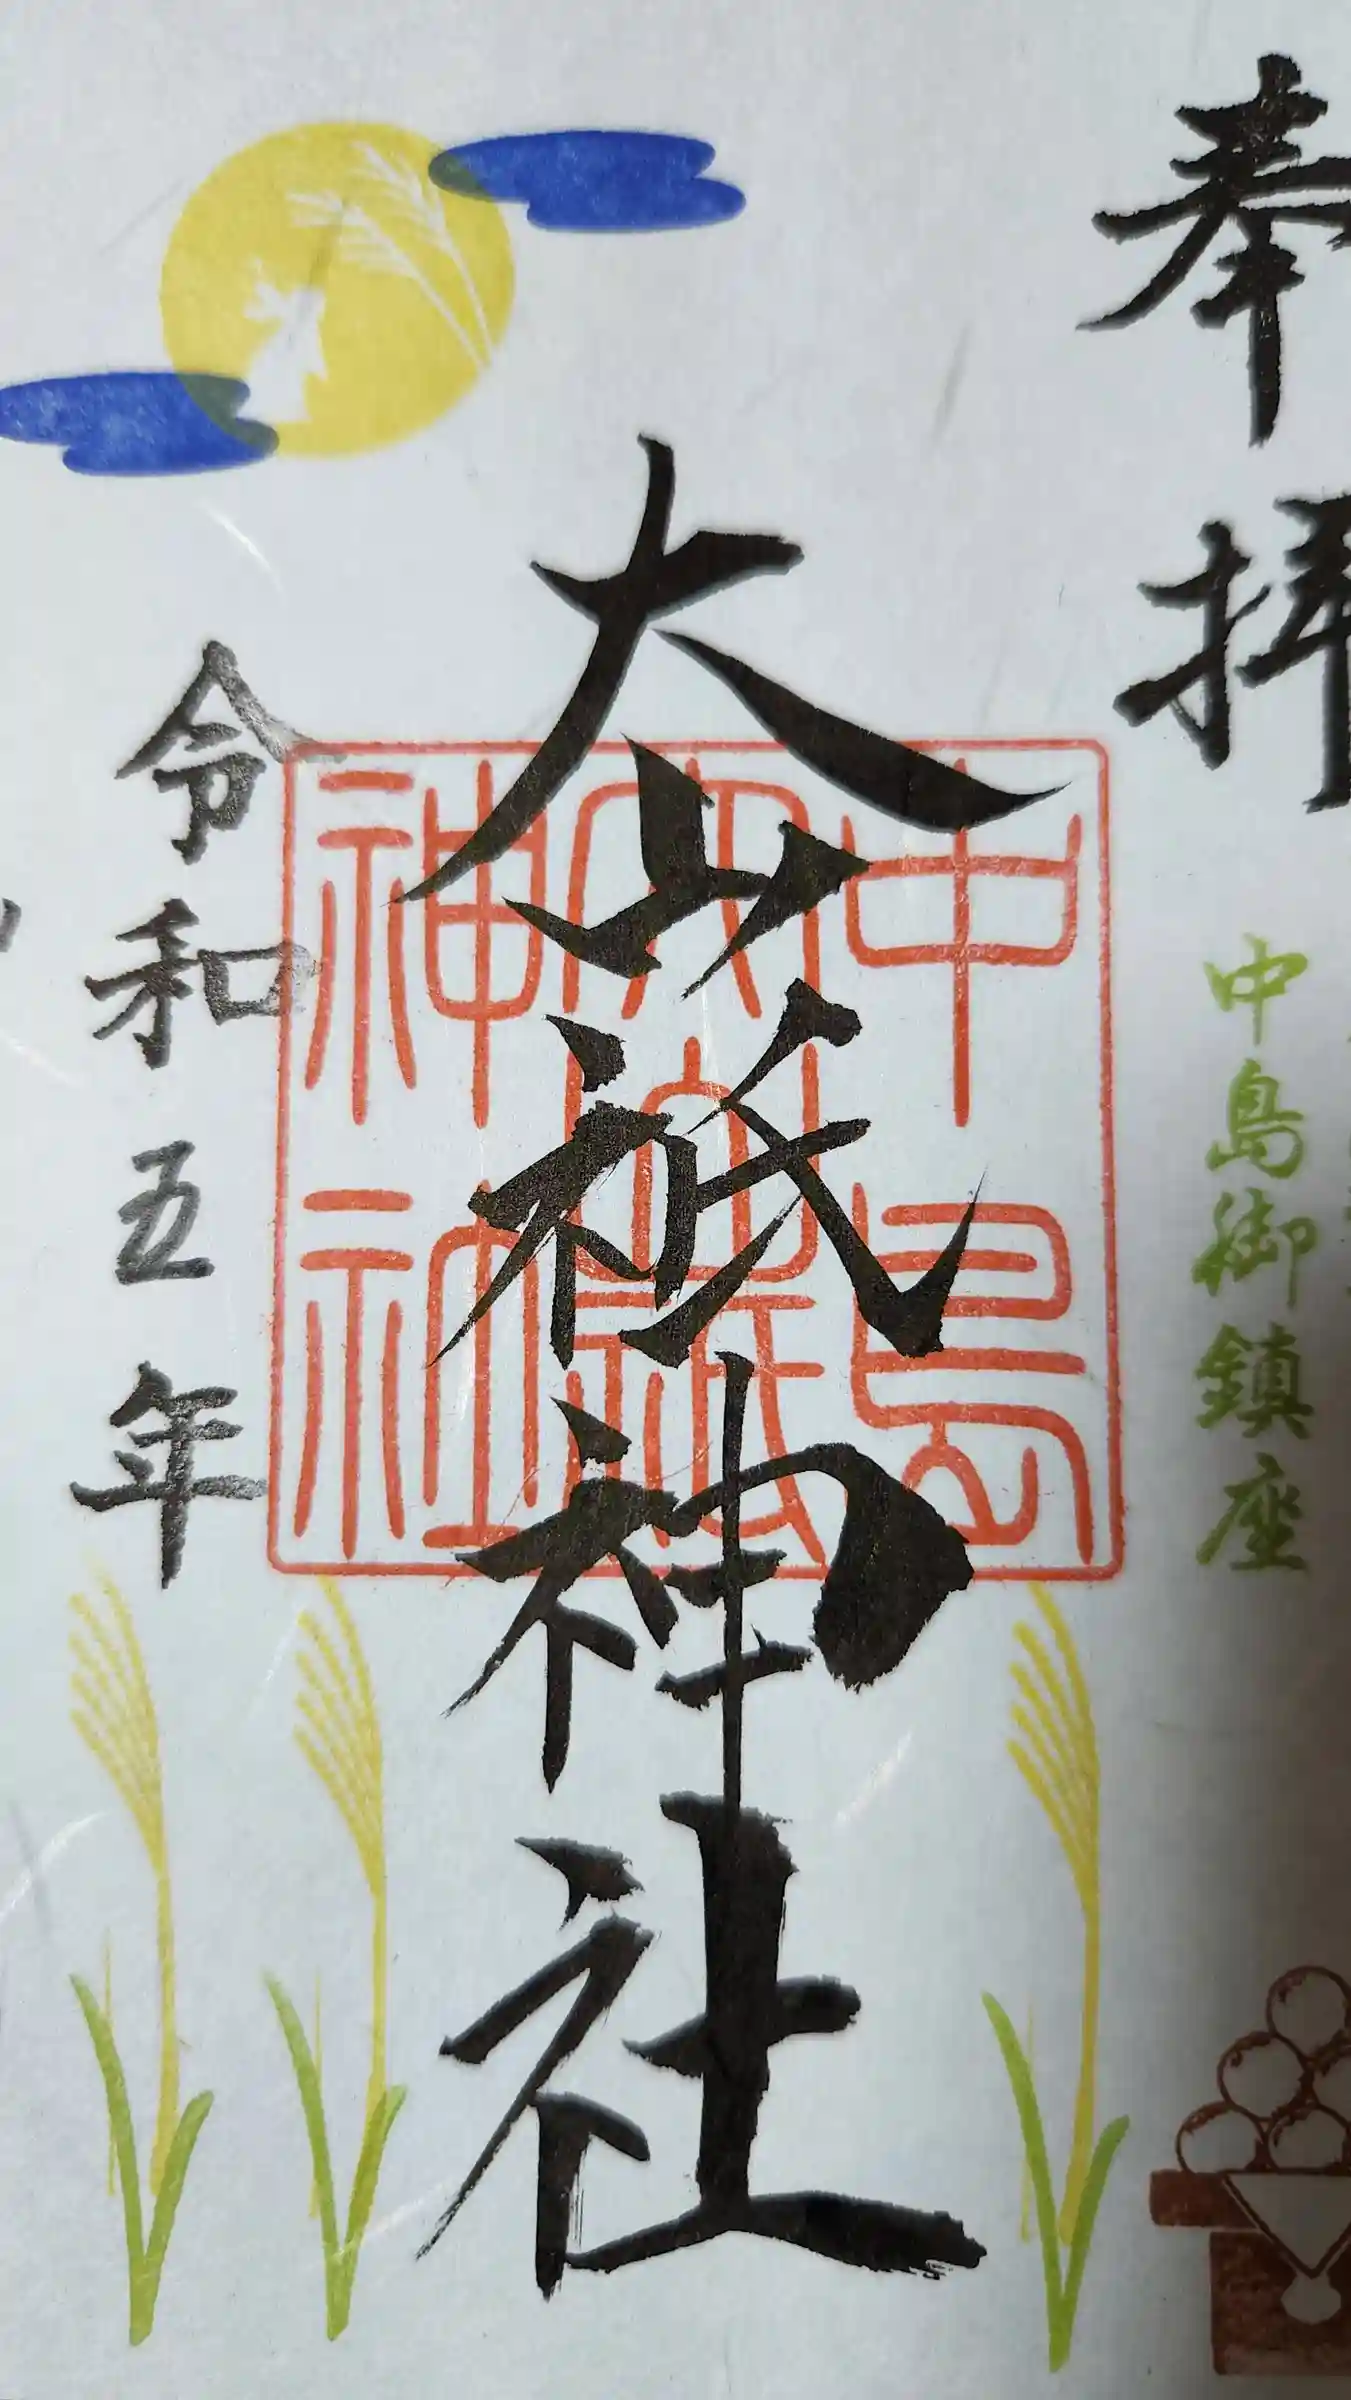 奉拝
中島御鎮座
大山祇神社
中島
大山祇
神社
令和五年